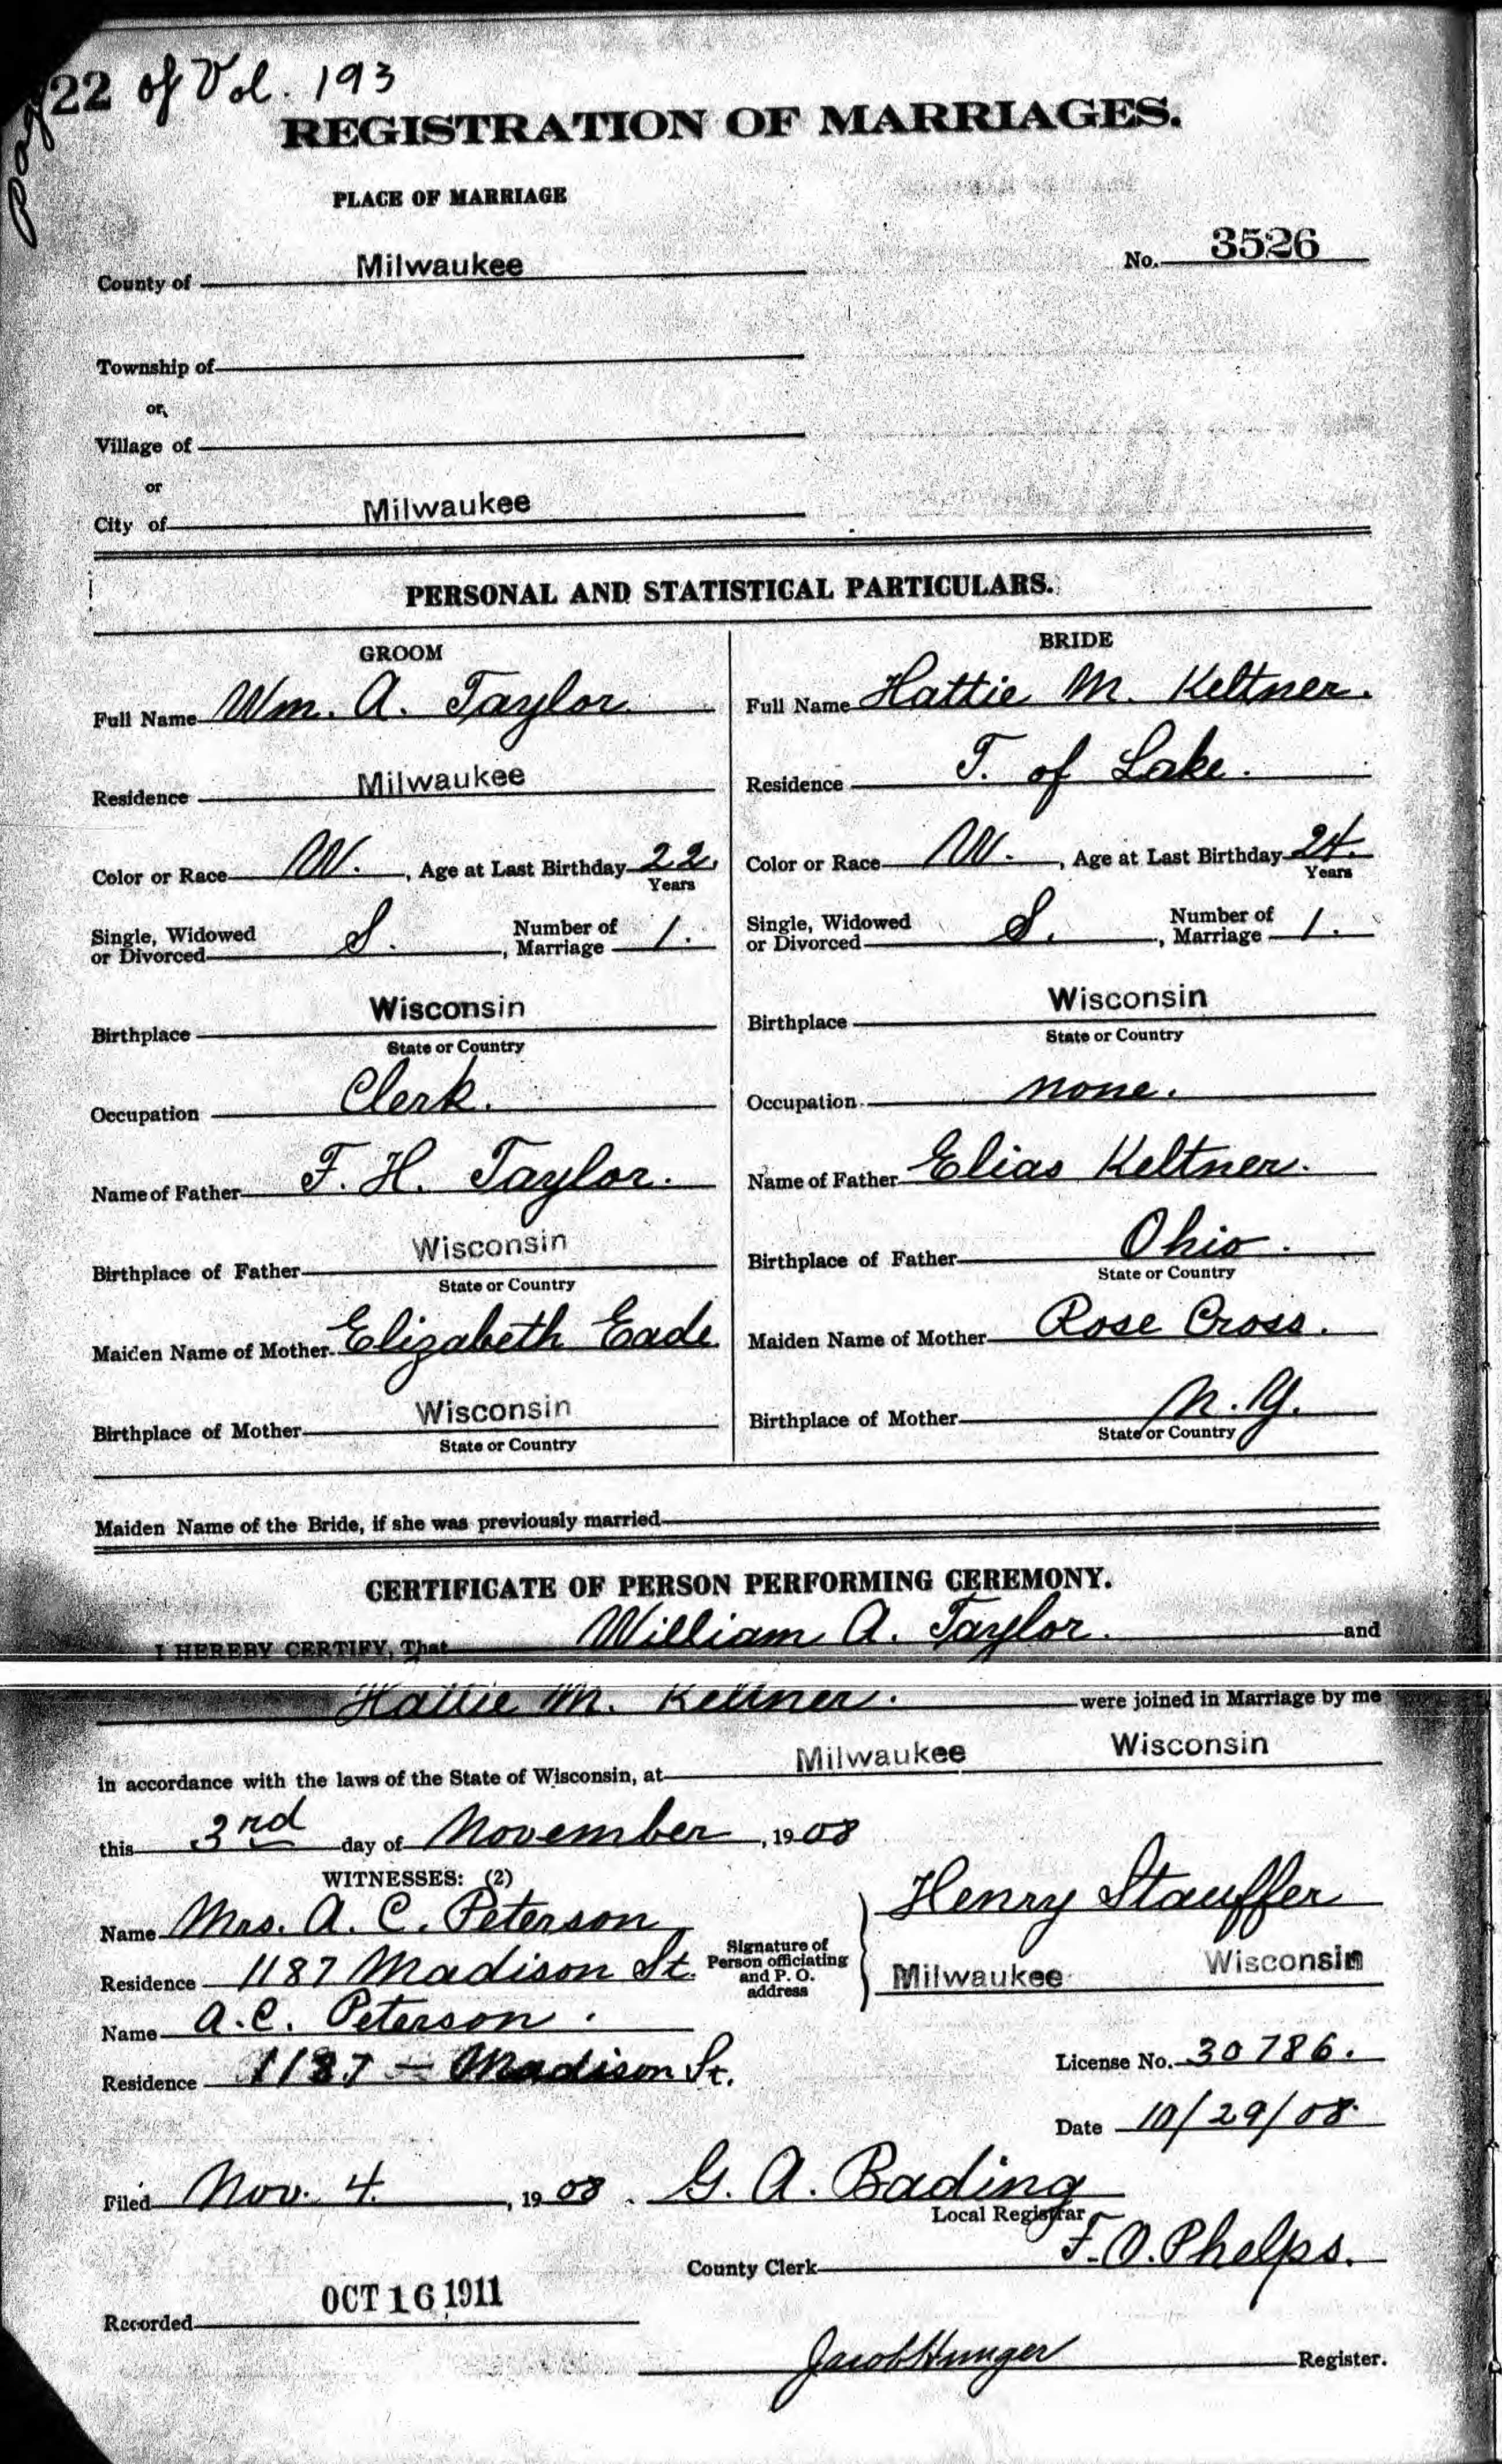 page 22 of Vol. 193
REGISTRATION OF MARRIAGES.
PLACE OF MARRIAGE
County of Milwaukee
No. 3526
Township of
or
Village of
or
City of Milwaukee
PERSONAL AND STATISTICAL PARTICULARS.
GROOM
Full Name Wm. A. Taylor
Residence Milwaukee
Color or Race W. , Age at Last Birthday 22.
Years
Single, Widowed or Divorced S. , Number of Marriage 1.
Birthplace Wisconsin
State or Country
Occupation Clerk.
Name of Father F. H. Taylor.
Birthplace of Father Wisconsin
State or Country
Maiden Name of Mother Elizabeth Eade
Birthplace of Mother Wisconsin
State or Country
BRIDE
Full Name Hattie M. Keltner.
Residence T. of Lake.
Color or Race W. , Age at Last Birthday 24.
Years
Single, Widowed or Divorced S. , Number of Marriage 1.
Birthplace Wisconsin
State or Country
Occupation none.
Name of Father Elias Keltner.
Birthplace of Father Ohio.
State or Country
Maiden Name of Mother Rose Cross.
Birthplace of Mother N.Y.
State or Country
Maiden Name of the Bride, if she was previously married
CERTIFICATE OF PERSON PERFORMING CEREMONY.
I HEREBY CERTIFY, That William A. Taylor. and
Hattie M. Keltner. were joined in Marriage by me
in accordance with the laws of the State of Wisconsin, at Milwaukee Wisconsin
this 3rd day of November , 1908
WITNESSES: (2)
Name Mrs. A. C. Peterson
Residence 1187 Madison St.
Name A.C. Peterson.
Residence 1187 - Madison St.
Signature of
Person officiating
and P. O.
address
Henry Stauffer
Milwaukee Wisconsin
License No. 30786.
Date 10/29/08.
Filed Nov. 4. , 1908. G. A. Bading
Local Registrar
County Clerk F. O. Phelps.
Recorded OCT 16 1911
Jacob Hunger Register.